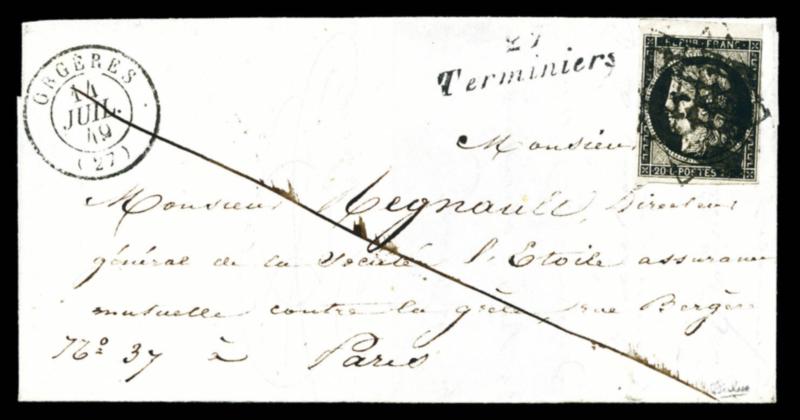 ORGÈRES
14
JUIL.
49
(27)
27
Terminiers
REPUB. FRANC.
20 C. POSTES
Monsieur
Monsieur Regnault, Directeur
général de la Société l'Etoile assurance
mutuelle contre la grêle, rue Bergère
N° 37 à Paris